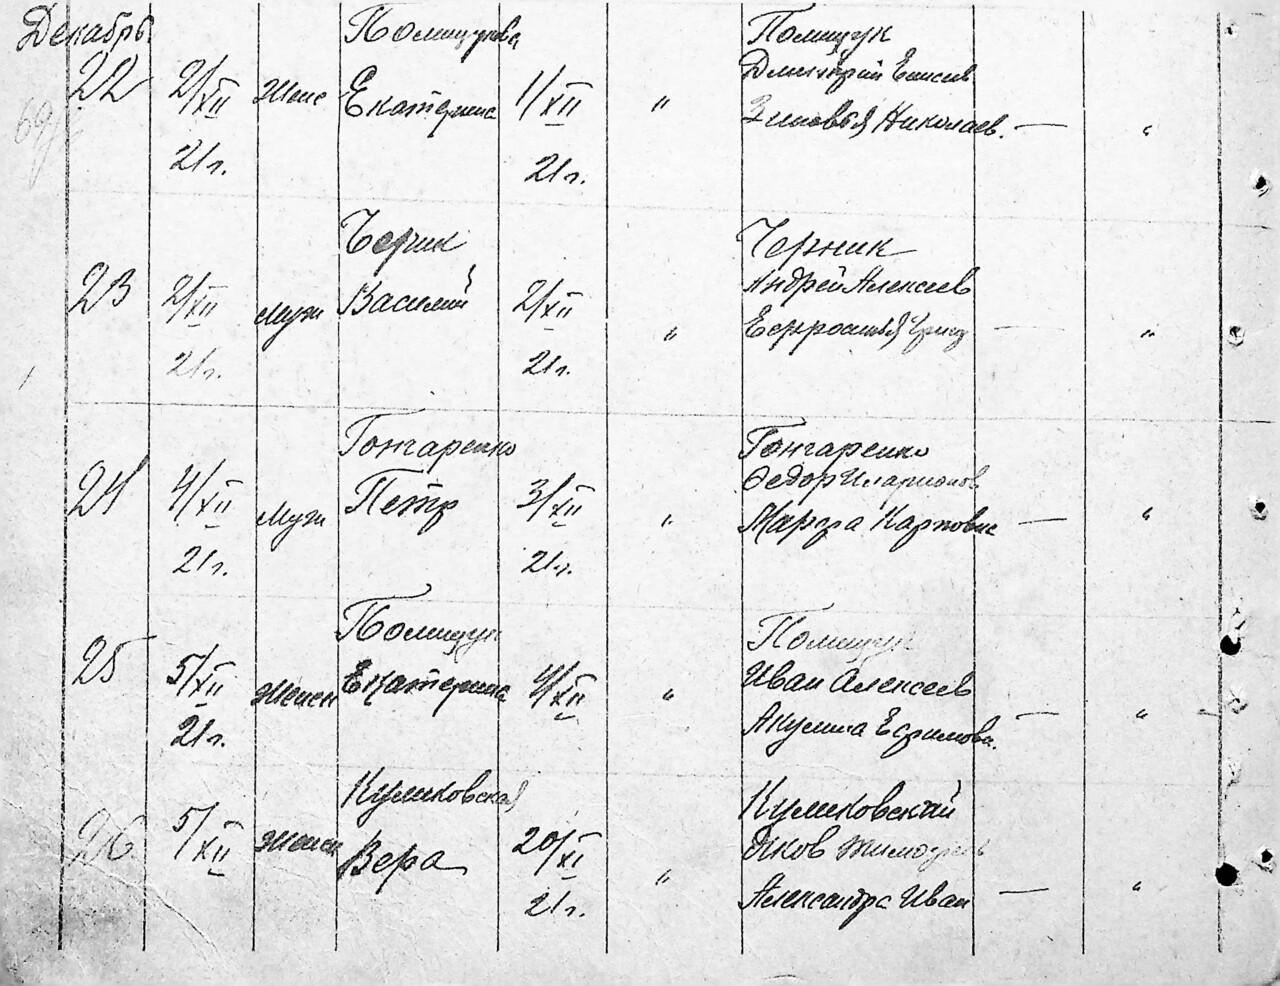 Декабрь
Полищукова Полищук
22 2/XII Женс Екатерина 1/XII " Дмитрий Елисеев
Зиновья Николаев. — "
21 г. 21 г.
Черник Черник
23 2/XII Мужс Василий 2/XII " Андрей Алексеев
Ефросинья Григ — "
21 г. 21 г.
Гончаренко Гончаренко
24 4/XII Мужс Петр 3/XII " Федор Иларионов
Марфа Карповна — "
21 г. 21 г.
Полищук Полищук
25 5/XII Женск Екатерина 4/XII " Иван Алексеев
21 г. Акулина Ефимова. — "
Куликовская Куликовский
26 5/XII Женск Вера 20/XI " Яков Тимофеев
21 г. Александра Иван — "